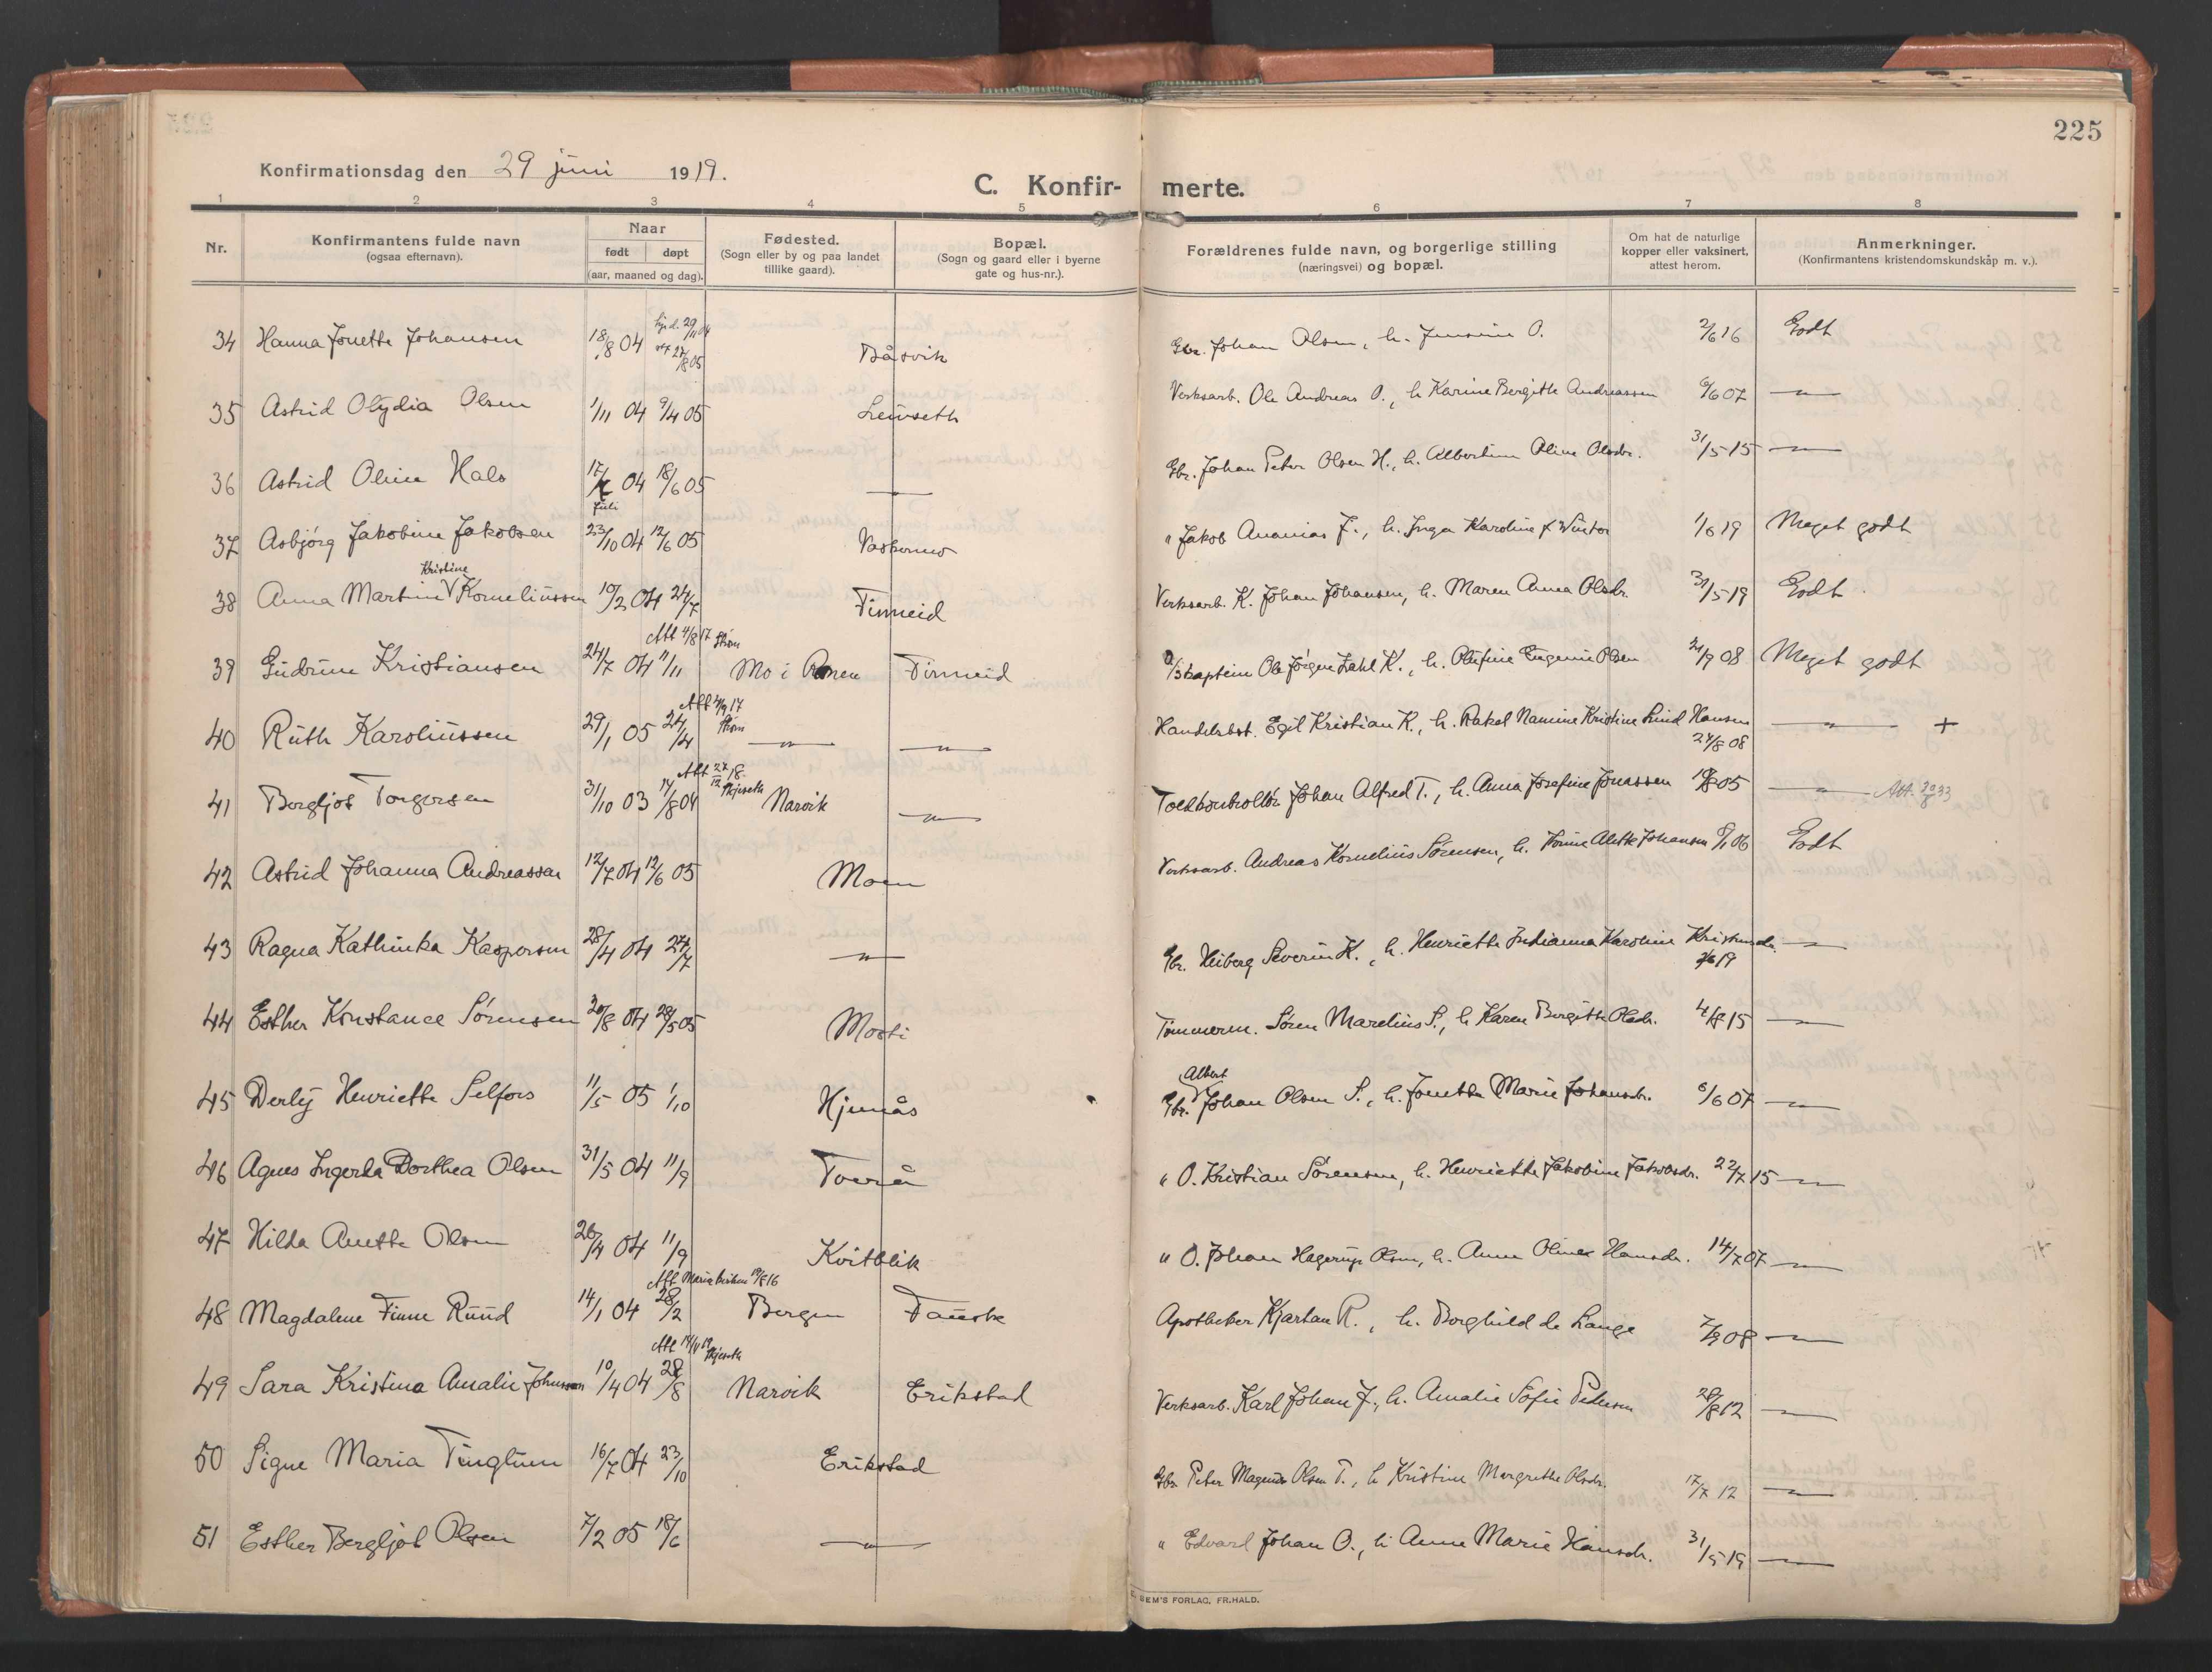 225
Konfirmationsdag den 29 juni 1919.
C. Konfir- merte.
1 2 3 4 5 6 7 8
Nr.
Konfirmantens fulde navn
(ogsaa efternavn).
Naar
født døpt
(aar, maaned og dag).
Fødested.
(Sogn eller by og paa landet
tillike gaard).
Bopæl.
(Sogn og gaard eller i byerne
gate og hus-nr.).
Forældrenes fulde navn, og borgerlige stilling
(næringsvei) og bopæl.
Om hat de naturlige
kopper eller vaksinert,
attest herom.
Anmerkninger.
(Konfirmantens kristendomskundskåp m. v.).
34 Hanna Jonette Johansen 18/8 04 hjd. 29/11 04 27/8 05 Båsvik Gbr. Johan Olsen, h. Jensine O. 2/6 16 Godt
35 Astrid Olydia Olsen 1/11 04 9/4 05 Leivseth Verksarb. Ole Andreas O., h. Karine Bergitte Andreassen 6/6 07 — " —
36 Astrid Oline Hals 17/7 04 18/6 05 — " — Gbr. Johan Peter Olsen H., h. Albertine Oline Olsdr. 31/5 15 — " —
juli
37 Asbjørg Jakobine Jakobsen 23/10 04 12/6 05 " Jakob Ananias J., h. Inga Karoline f. Winter 1/6 19 Meget godt
Kristine
38 Anna Martine Korneliussen 10/2 04 24/7 Finneid Verksarb. K. Johan Johansen, h. Maren Anna Olsdr. 31/5 19 Godt
Att 4/8 17 Strøm
39 Gudrun Kristiansen 24/7 04 11/11 Mo i Ranen Finneid D/Skaptein Ole Jørgen Zahl K., h. Olufine Eugenie Olsen 21/9 08 Meget godt
Att 4/9 17 Strøm
40 Ruth Karoliussen 29/1 05 24/4 — " — — " — Handelsbst. Egil Kristian K., h. Rakel Namine Kristine Lind Hansen 27/8 08 — " — +
Att 27/12 18 Skjeseth
41 Bergljot Torgersen 31/10 03 14/8 04 Narvik — " — Toldkontrollør Johan Alfred T., h. Anna Josefine Jonassen 19/8 05 — " — Att. 20/8 33
42 Astrid Johanna Andreassen 12/7 04 12/6 05 Moen Verksarb. Andreas Kornelius Sørensen, h. Alette Johansen 06 Godt
43 Ragna Kathinka Kaspersen 28/4 04 24/7 — " — Gbr. Heiberg Severin K., h. Henriette Indianna Karoline Kristensdr. 19 — " —
44 Esther Konstance Sørensen 30/8 04 28/5 05 Mosti Tømmerm. Søren Marelius S., h. Karen Bergitte Olsdr. 4/8 15 — " —
Albert
45 Derly Henriette Selfors 11/5 05 1/10 Hjemås Gbr. Johan Olsen S., h. Jonette Marie Johansdr. 6/6 07 — " —
46 Agnes Ingerda Dorthea Olsen 31/5 04 11/9 Tverå " O. Kristian Sørensen, h. Henriette Jakobine Jakobsdr. 22/7 15 — " —
47 Hilda Anette Olsen 26/4 04 11/9 Kvitblik " O. Johan Hagerup Olsen, h. Anne Oline Hansdr. 14/7 07 — " —
Att Mariakirken 19/8 16
48 Magdalene Finne Ruud 14/1 04 28/2 Bergen Fauske Apotheker Kjartan R., h. Borghild de Lange 7/9 08 — " —
Att 14/11 18 Skjeseth
49 Sara Kristina Amalie Johnssen 10/4 04 28/8 Narvik Erikstad Verksarb. Karl Johan J., h. Amalie Sofie Pedersen 28/8 12 — " —
50 Signe Maria Tinglum 16/7 04 23/10 Erikstad Gbr. Peter Magnus Olsen T., h. Kristine Margrethe Olsdr. 17/7 12 — " —
51 Esther Bergljot Olsen 7/2 05 18/6 — " — " Edvard Johan O., h. Anne Marie Hansdr. 31/5 19 — " —
SEM'S FORLAG, FR.HALD.